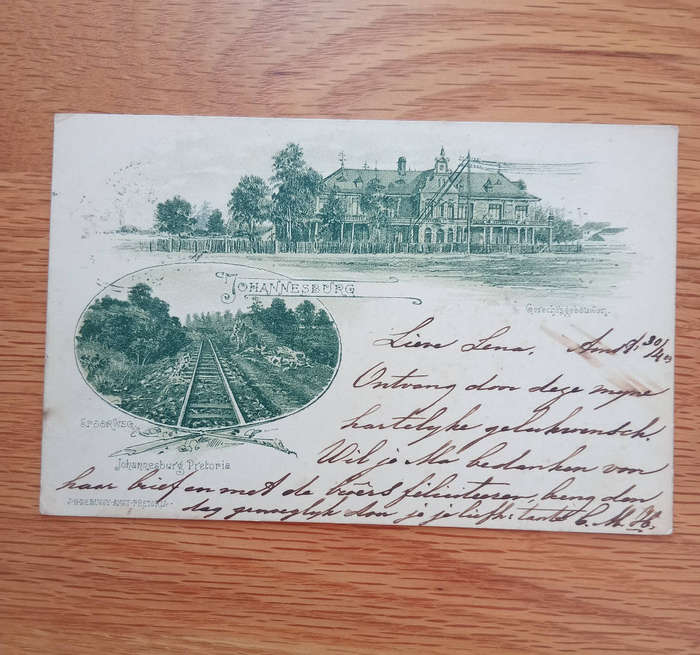 JOHANNESBURG
Gerechtsgebouwen.
SPOORWEG
Johannesburg Pretoria
J.H. DE BUSSY AMST-PRETORIA
Lieve Lena, Amst. 30/4 03
Ontvang door deze myne
hartelyke gelukwensch.
Wil je Ma bedanken voor
haar brief en met de boêrs feliciteeren, breng den
dag genoegelyk door je je liefh: tante C. M. H.